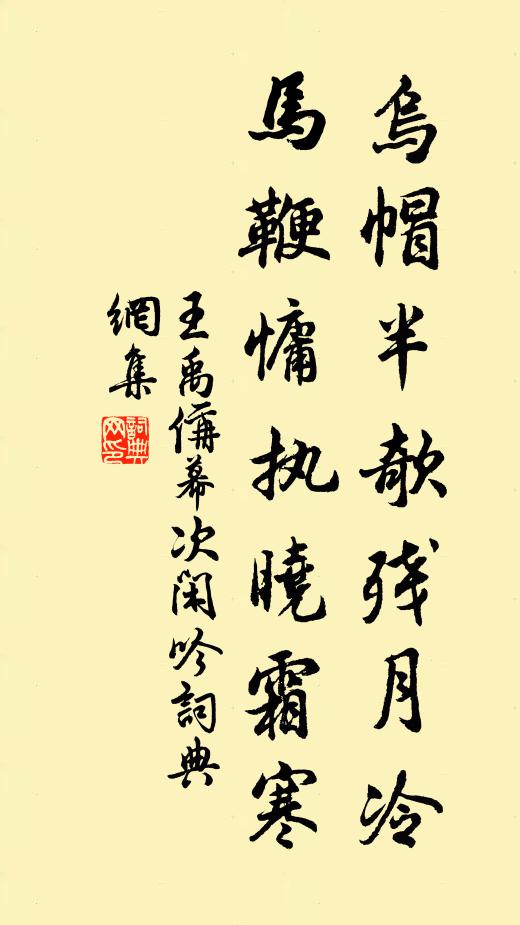 烏帽半欹残月冷
馬鞭慵执曉霜寒
王禹偁幕次閑吟詞典
網集
詞典
网印